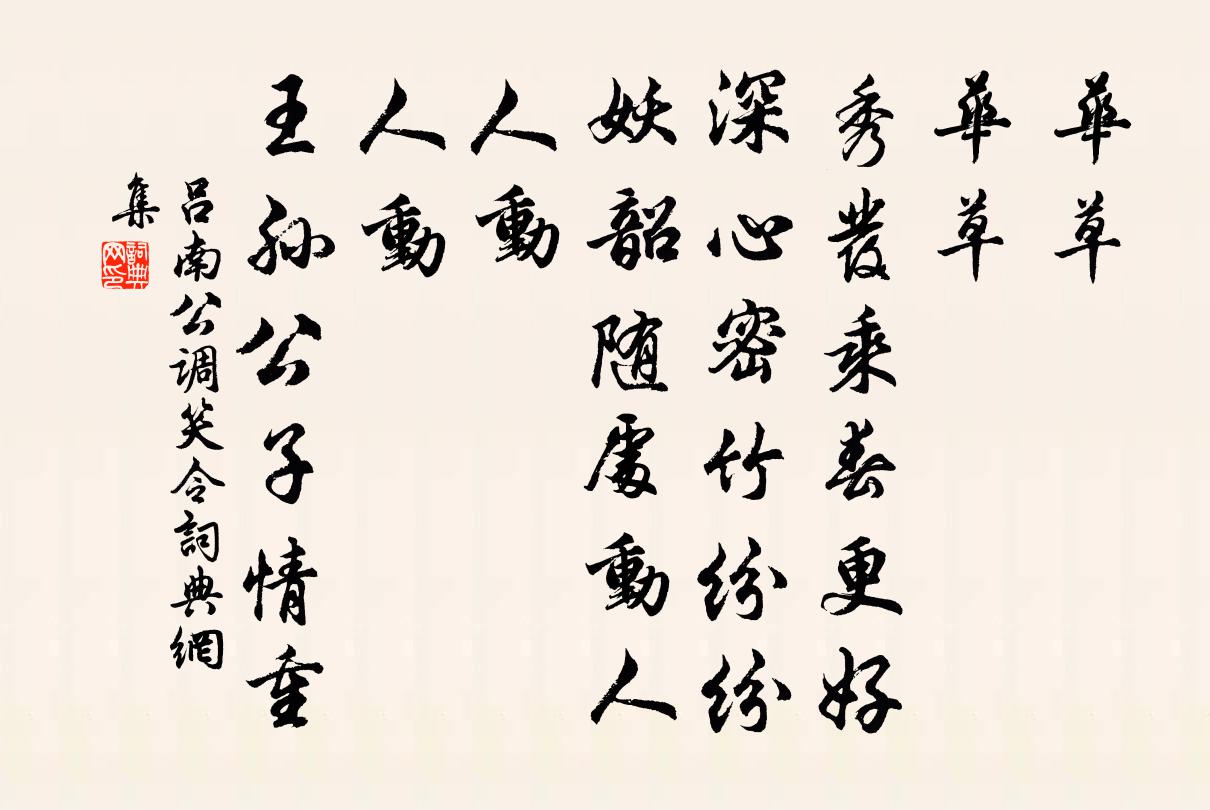 華草
華草
秀發乘春更好
深心密竹紛紛
妖韶随處動人
人動
人動
王孫公子情重
呂南公調笑令詞典網
集
詞典网印